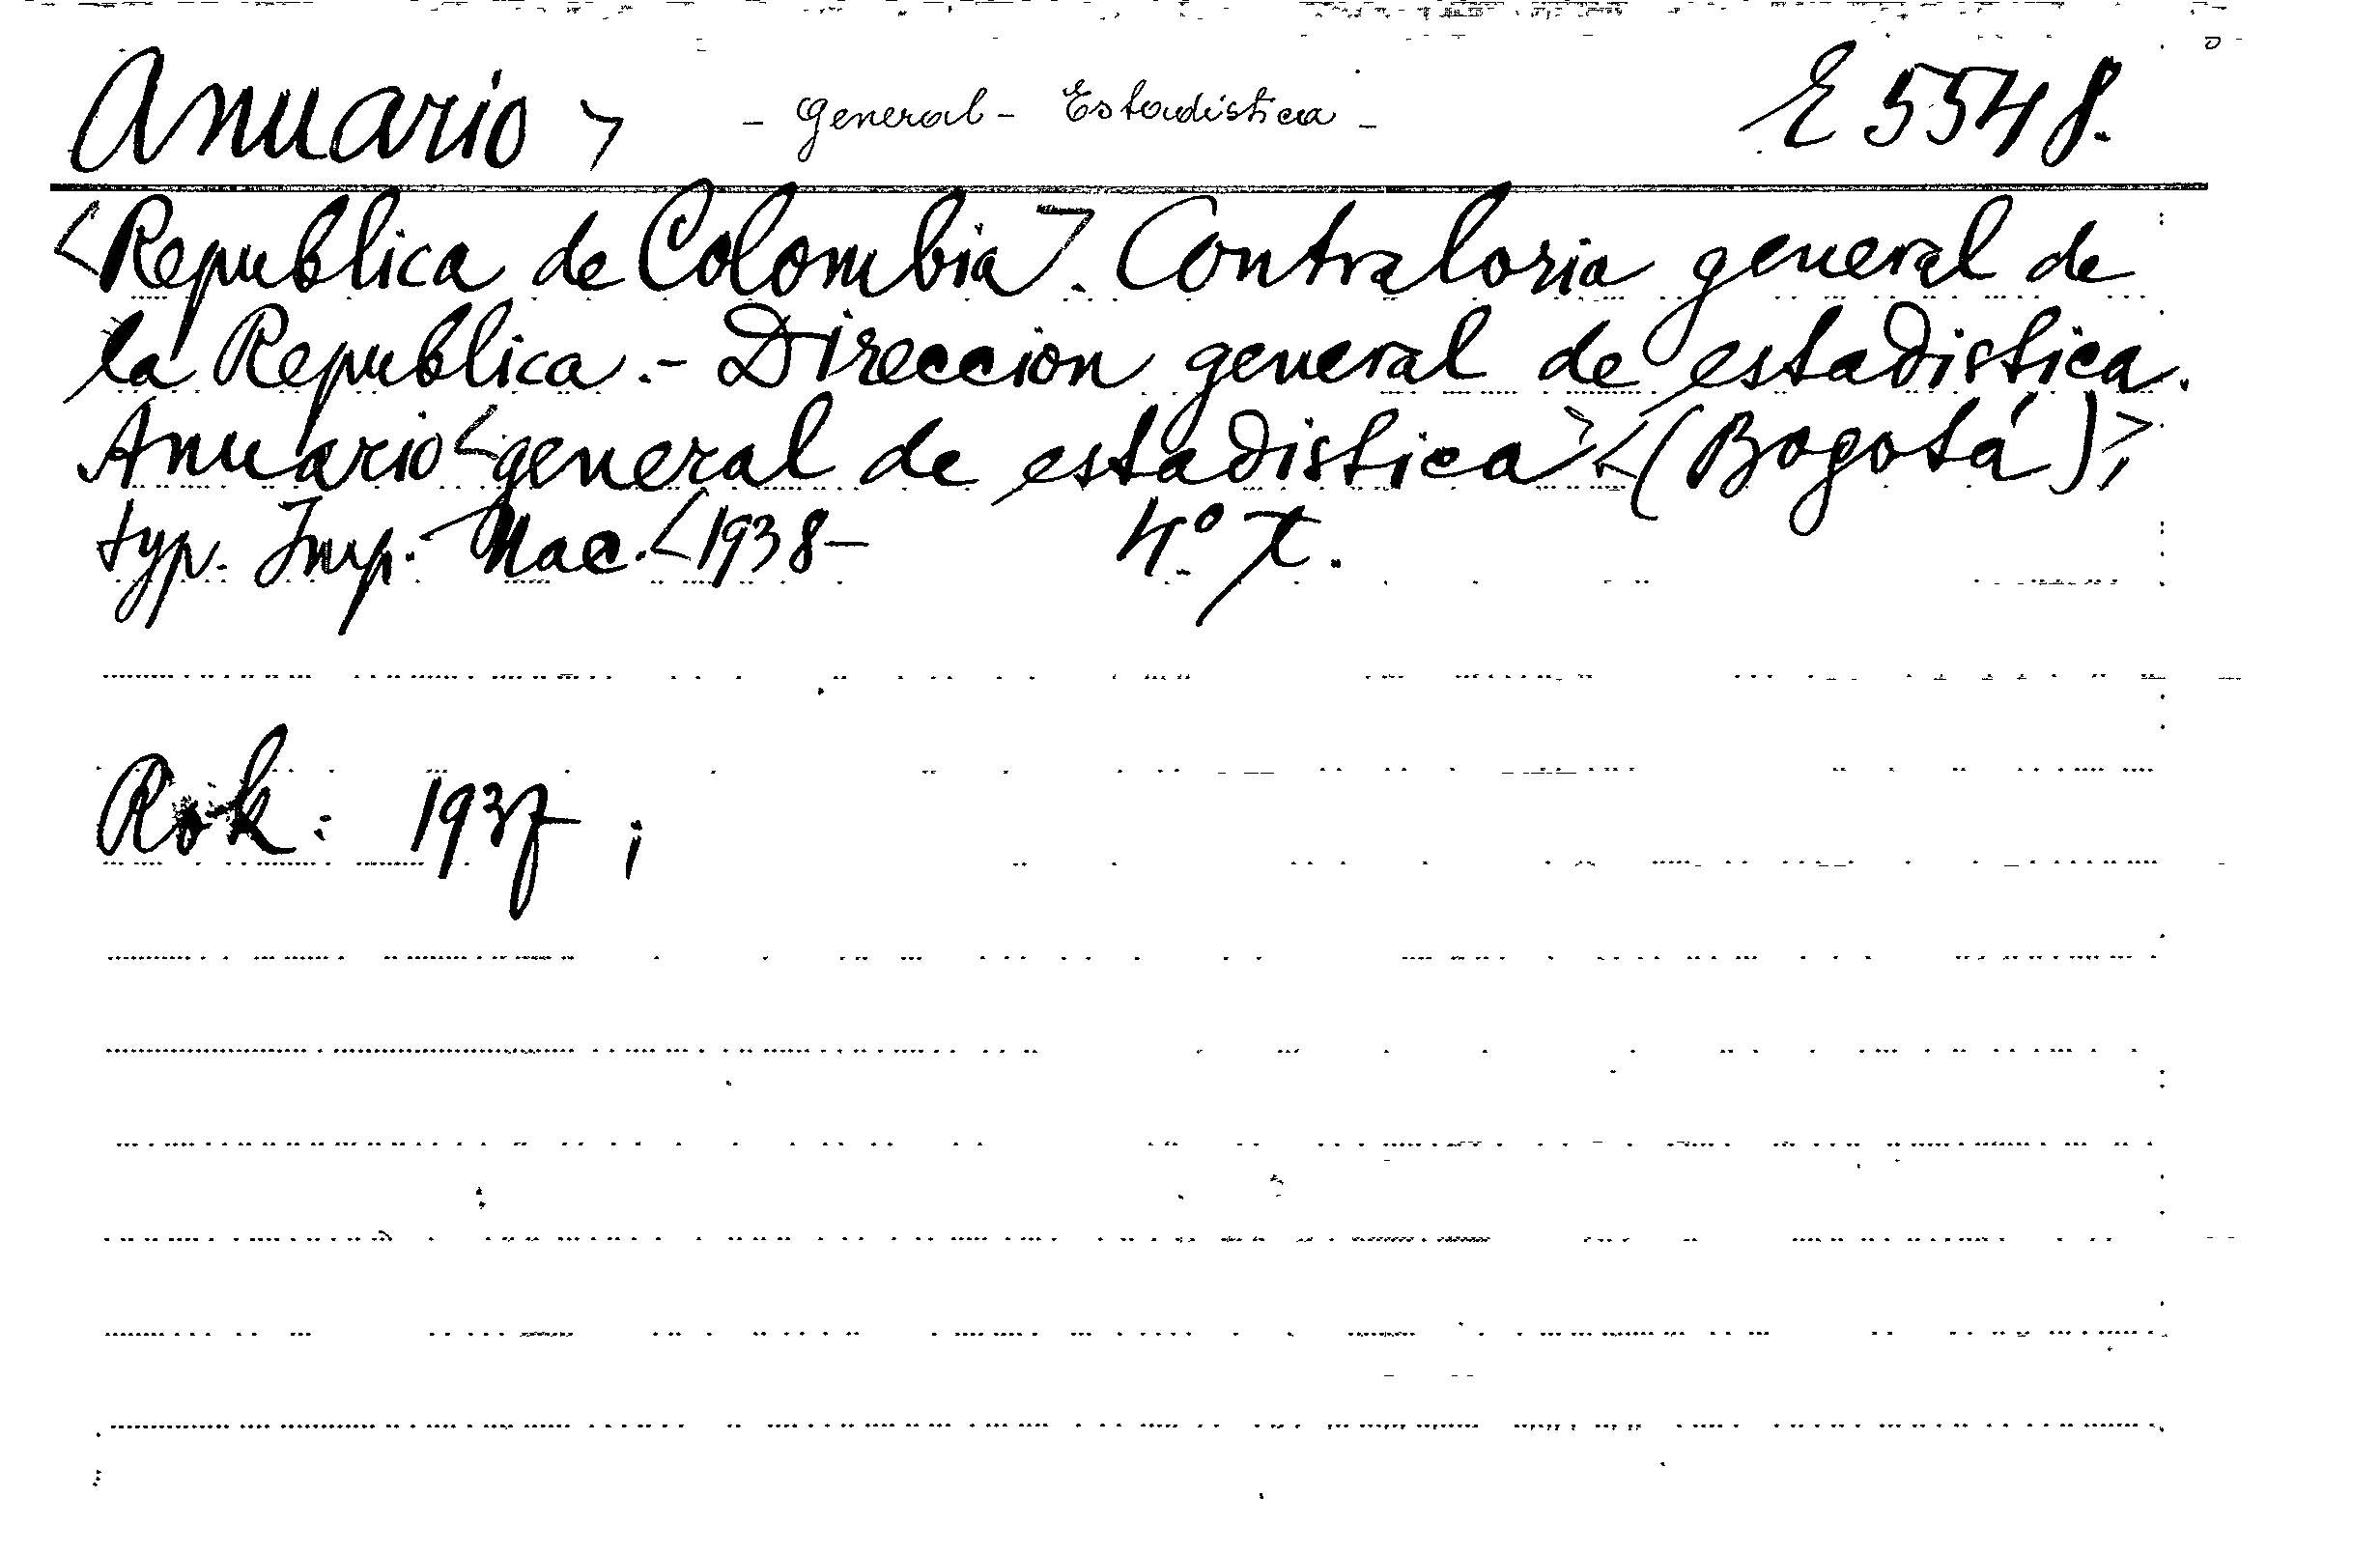 Anuario > - General - Estadistica - E 5548.
<Republica de Colombia>. Contraloria general de
la Republica. - Direccion general de estadistica.
Anuario <general de estadistica> <(Bogotá)>,
typ. Imp. Nac. <1938- 4° X.
Rok: 1937 ;